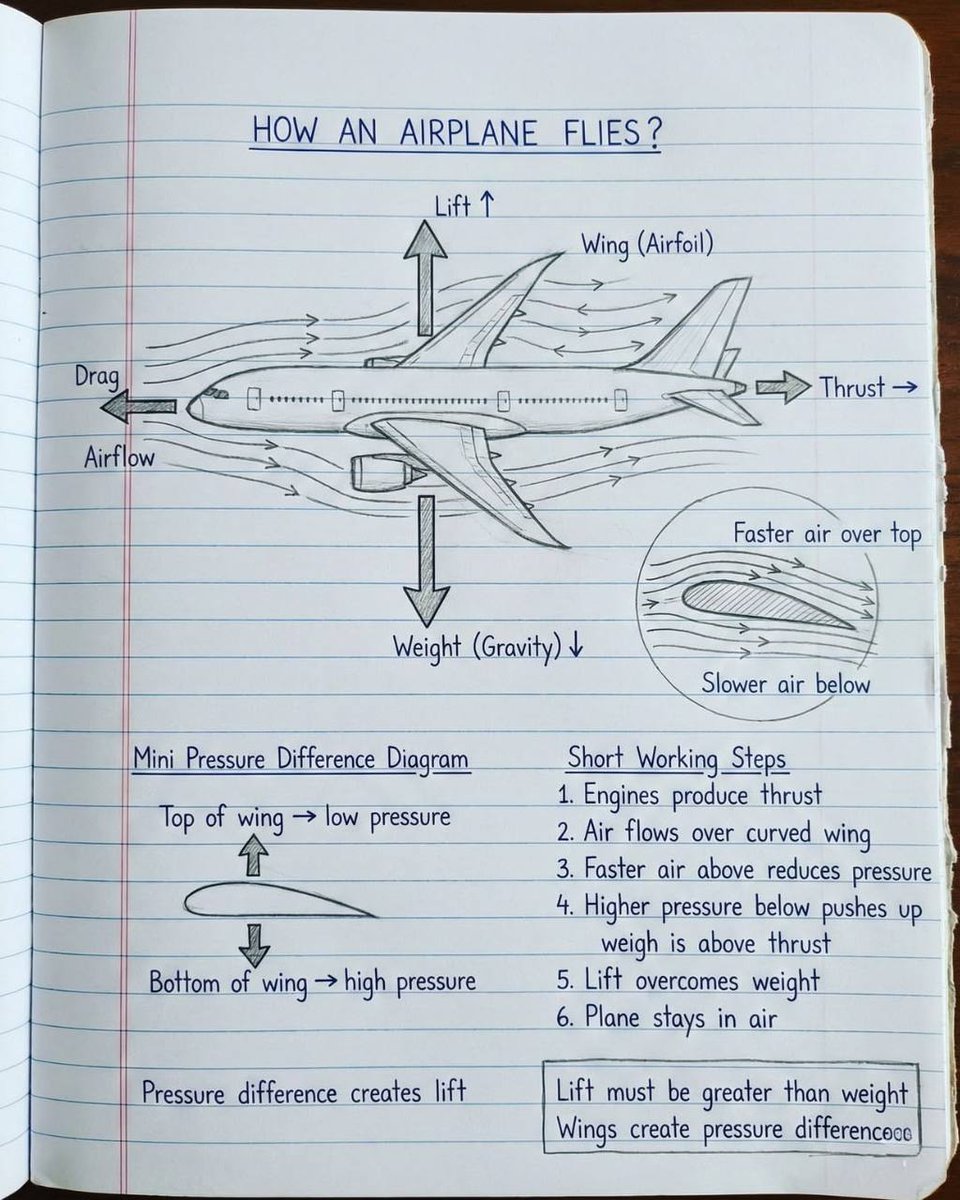 HOW AN AIRPLANE FLIES?
Lift ↑
Wing (Airfoil)
Drag
Thrust →
Airflow
Faster air over top
Weight (Gravity) ↓
Slower air below
Mini Pressure Difference Diagram
Top of wing → low pressure
Bottom of wing → high pressure
Pressure difference creates lift
Short Working Steps
1. Engines produce thrust
2. Air flows over curved wing
3. Faster air above reduces pressure
4. Higher pressure below pushes up
weigh is above thrust
5. Lift overcomes weight
6. Plane stays in air
Lift must be greater than weight
Wings create pressure